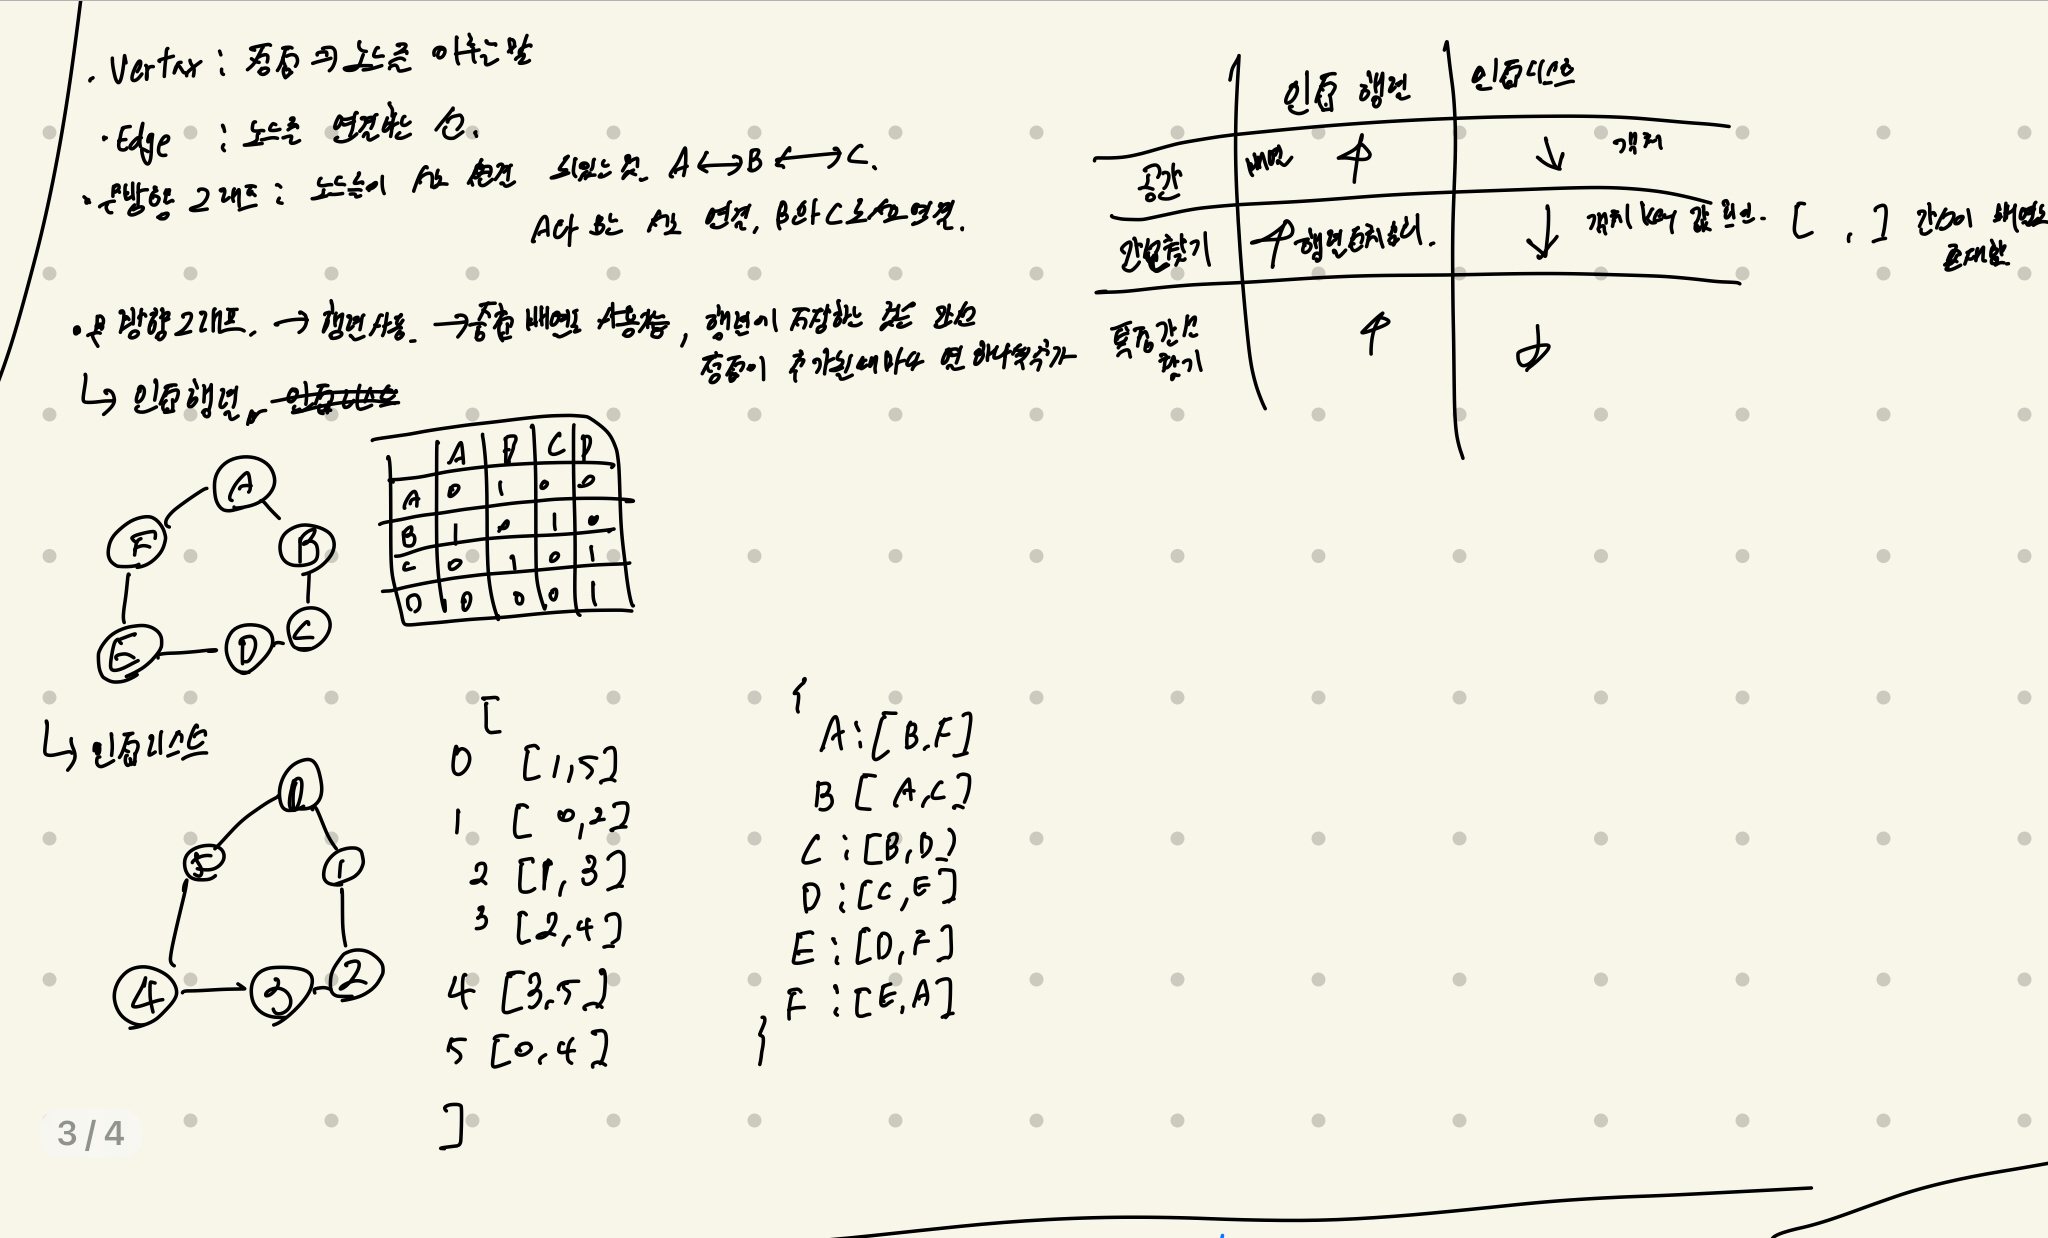 · Vertax : 정점 즉 노드를 이루는말
· Edge : 노드를 연결하는 선.
· 무방향 그래프 : 노드들이 서로 연결 되있는것. A ↔ B ↔ C.
A와 B는 서로 연결, B와 C로 서로 연결.
· 무방향그래프. → 행렬사용. → 중첩 배열도 사용가능, 행렬이 저장하는 것은 간선
정점이 추가될때마다 열 하나씩 추가
↳ 인접행렬, 인접리스트
A
F
B
E
D
C
A B C D
A 0 1 0 0
B 1 0 1 0
C 0 1 0 1
D 0 0 0 1
↳ 인접리스트
0
5
1
4
3
2
[
0 [1,5]
1 [0,2]
2 [1,3]
3 [2,4]
4 [3,5]
5 [0,4]
]
{
A:[B,F]
B [A,C]
C:[B,D]
D:[C,E]
E:[D,F]
F:[E,A]
}
인접 행렬 인접리스트
공간 배열 ↑ ↓ 객체
간선찾기 ↑ ↓ 객체 key 값 확인. [ , ]
특정간선 ↑ ↓
찾기
3 / 4